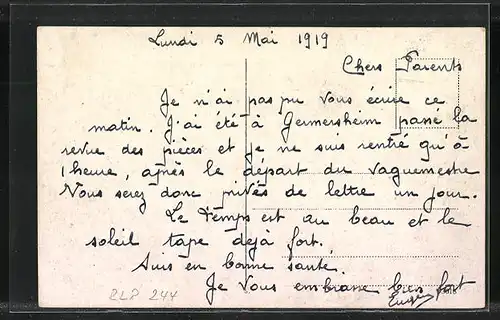 Lundi 5 Mai 1919
Chers Parents
Je n'ai pas pu vous écrire ce
matin. J'ai été à Germersheim passé la
revue des pieces et je ne suis rentré qu'à
1 heure, après le départ du vaguemestre
Vous serez donc privés de lettre un jour.
Le temps est au beau et le
soleil tape dejà fort.
Suis en bonne sante.
Je vous embrasse bien fort
RLP 244